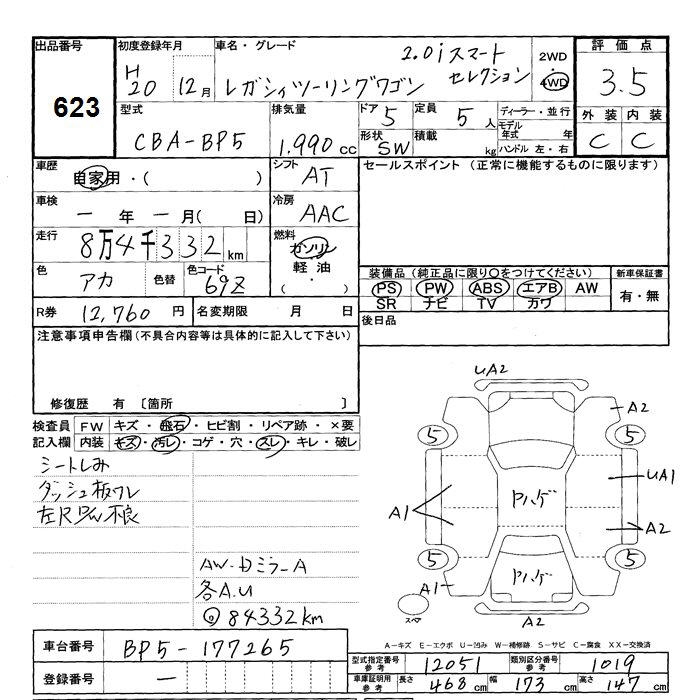 出品番号
623
初度登録年月
H
20 12月
車名・グレード
2.0i スマート
セレクション
レガシィツーリングワゴン
2WD
4WD
評価点
3.5
外装 内装
C C
型式
CBA-BP5
排気量
1.990 cc
ドア
5
形状
SW
定員
5 人
積載
kg
ディーラー・並行
モデル
年式 年
ハンドル 左・右
車歴
自家用・( )
シフト
AT
車検
一 年 一 月( 日)
冷房
AAC
走行
8万4千332 km
燃料
ガソリン
軽油
( ・ )
色
アカ
色替
色コード
69Z
R券 12,760 円
名変期限 月 日
セールスポイント (正常に機能するものに限ります)
装備品(純正品に限り○をつけてください)
PS PW ABS エアB AW
SR ナビ TV カワ
新車保証書
有・無
後日品
注意事項申告欄(不具合内容等は具体的に記入して下さい)
修復歴 有 〔箇所 〕
検査員
記入欄
FW キズ・飛石・ヒビ割・リペア跡・×要
内装 キズ・汚レ・コゲ・穴・スレ・キレ・破レ
シートしみ
ダッシュ板ワレ
左R P/W不良
AW・Dミラー A
各A.U
◎84332km
UA2
A2
5
5
UA1
A1
Pハゲ
A2
5
5
Pハゲ
A1
スペア
A2
A-キズ E-エクボ U-凹み W-補修跡 S-サビ C-腐食 XX-交換済
車台番号 BP5-177265
登録番号 一
型式指定番号
参考
12051
類別区分番号
参考
1019
車庫証明用
参考
長さ 468 cm 幅 173 cm 高さ 147 cm